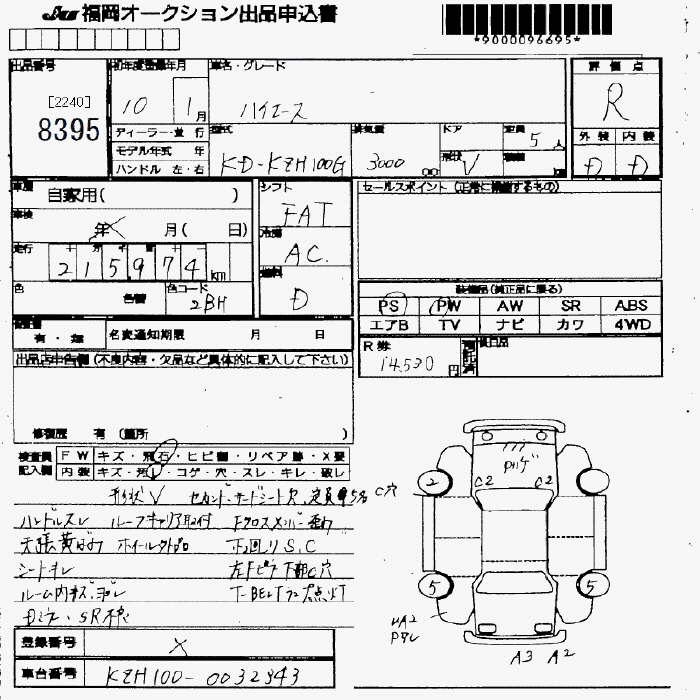 福岡オークション出品申込書
*9000096695*
出品番号
[2240]
8395
初年度登録年月
10 1月
車名・グレード
ハイエース
評価点
R
外装 内装
D D
ディーラー・並行
モデル年式 年
ハンドル 左・右
型式
KD-KZH100G
排気量
3000
cc
ドア
形状 V
定員
5人
積載
車歴
自家用( )
車検
年 月( 日)
走行
十 万 千 百 十
215974km
色
色替
色コード
2BH
シフト
FAT
冷房
AC.
燃料
D
セールスポイント (正常に機能するもの)
装備品(純正品に限る)
PS PW AW SR ABS
エアB TV ナビ カワ 4WD
有・無
名変通知期限 月 日
R券
14,530円
預託済
後日品
出品店申告欄(不良内容・欠品など具体的に記入して下さい)
修復歴 有 (箇所 )
検査員
記入欄
FW キズ・飛石・ヒビ割・リペア跡・X要
内装 キズ・汚れ・コゲ・穴・スレ・キレ・破レ
形状V セカンド、サードシート欠、定員 5名
ハンドルスレ ルーフキャリア取付 Fクロスメンバー
天張黄ばみ ホイール 下回りS,C
シートキレ 左 下部C穴
ルーム内キズ、 T-BELTランプ点灯
SR
登録番号
X
車台番号
KZH100-0032343
C2 C2
C穴
2
5 5
UA2
A3 A2